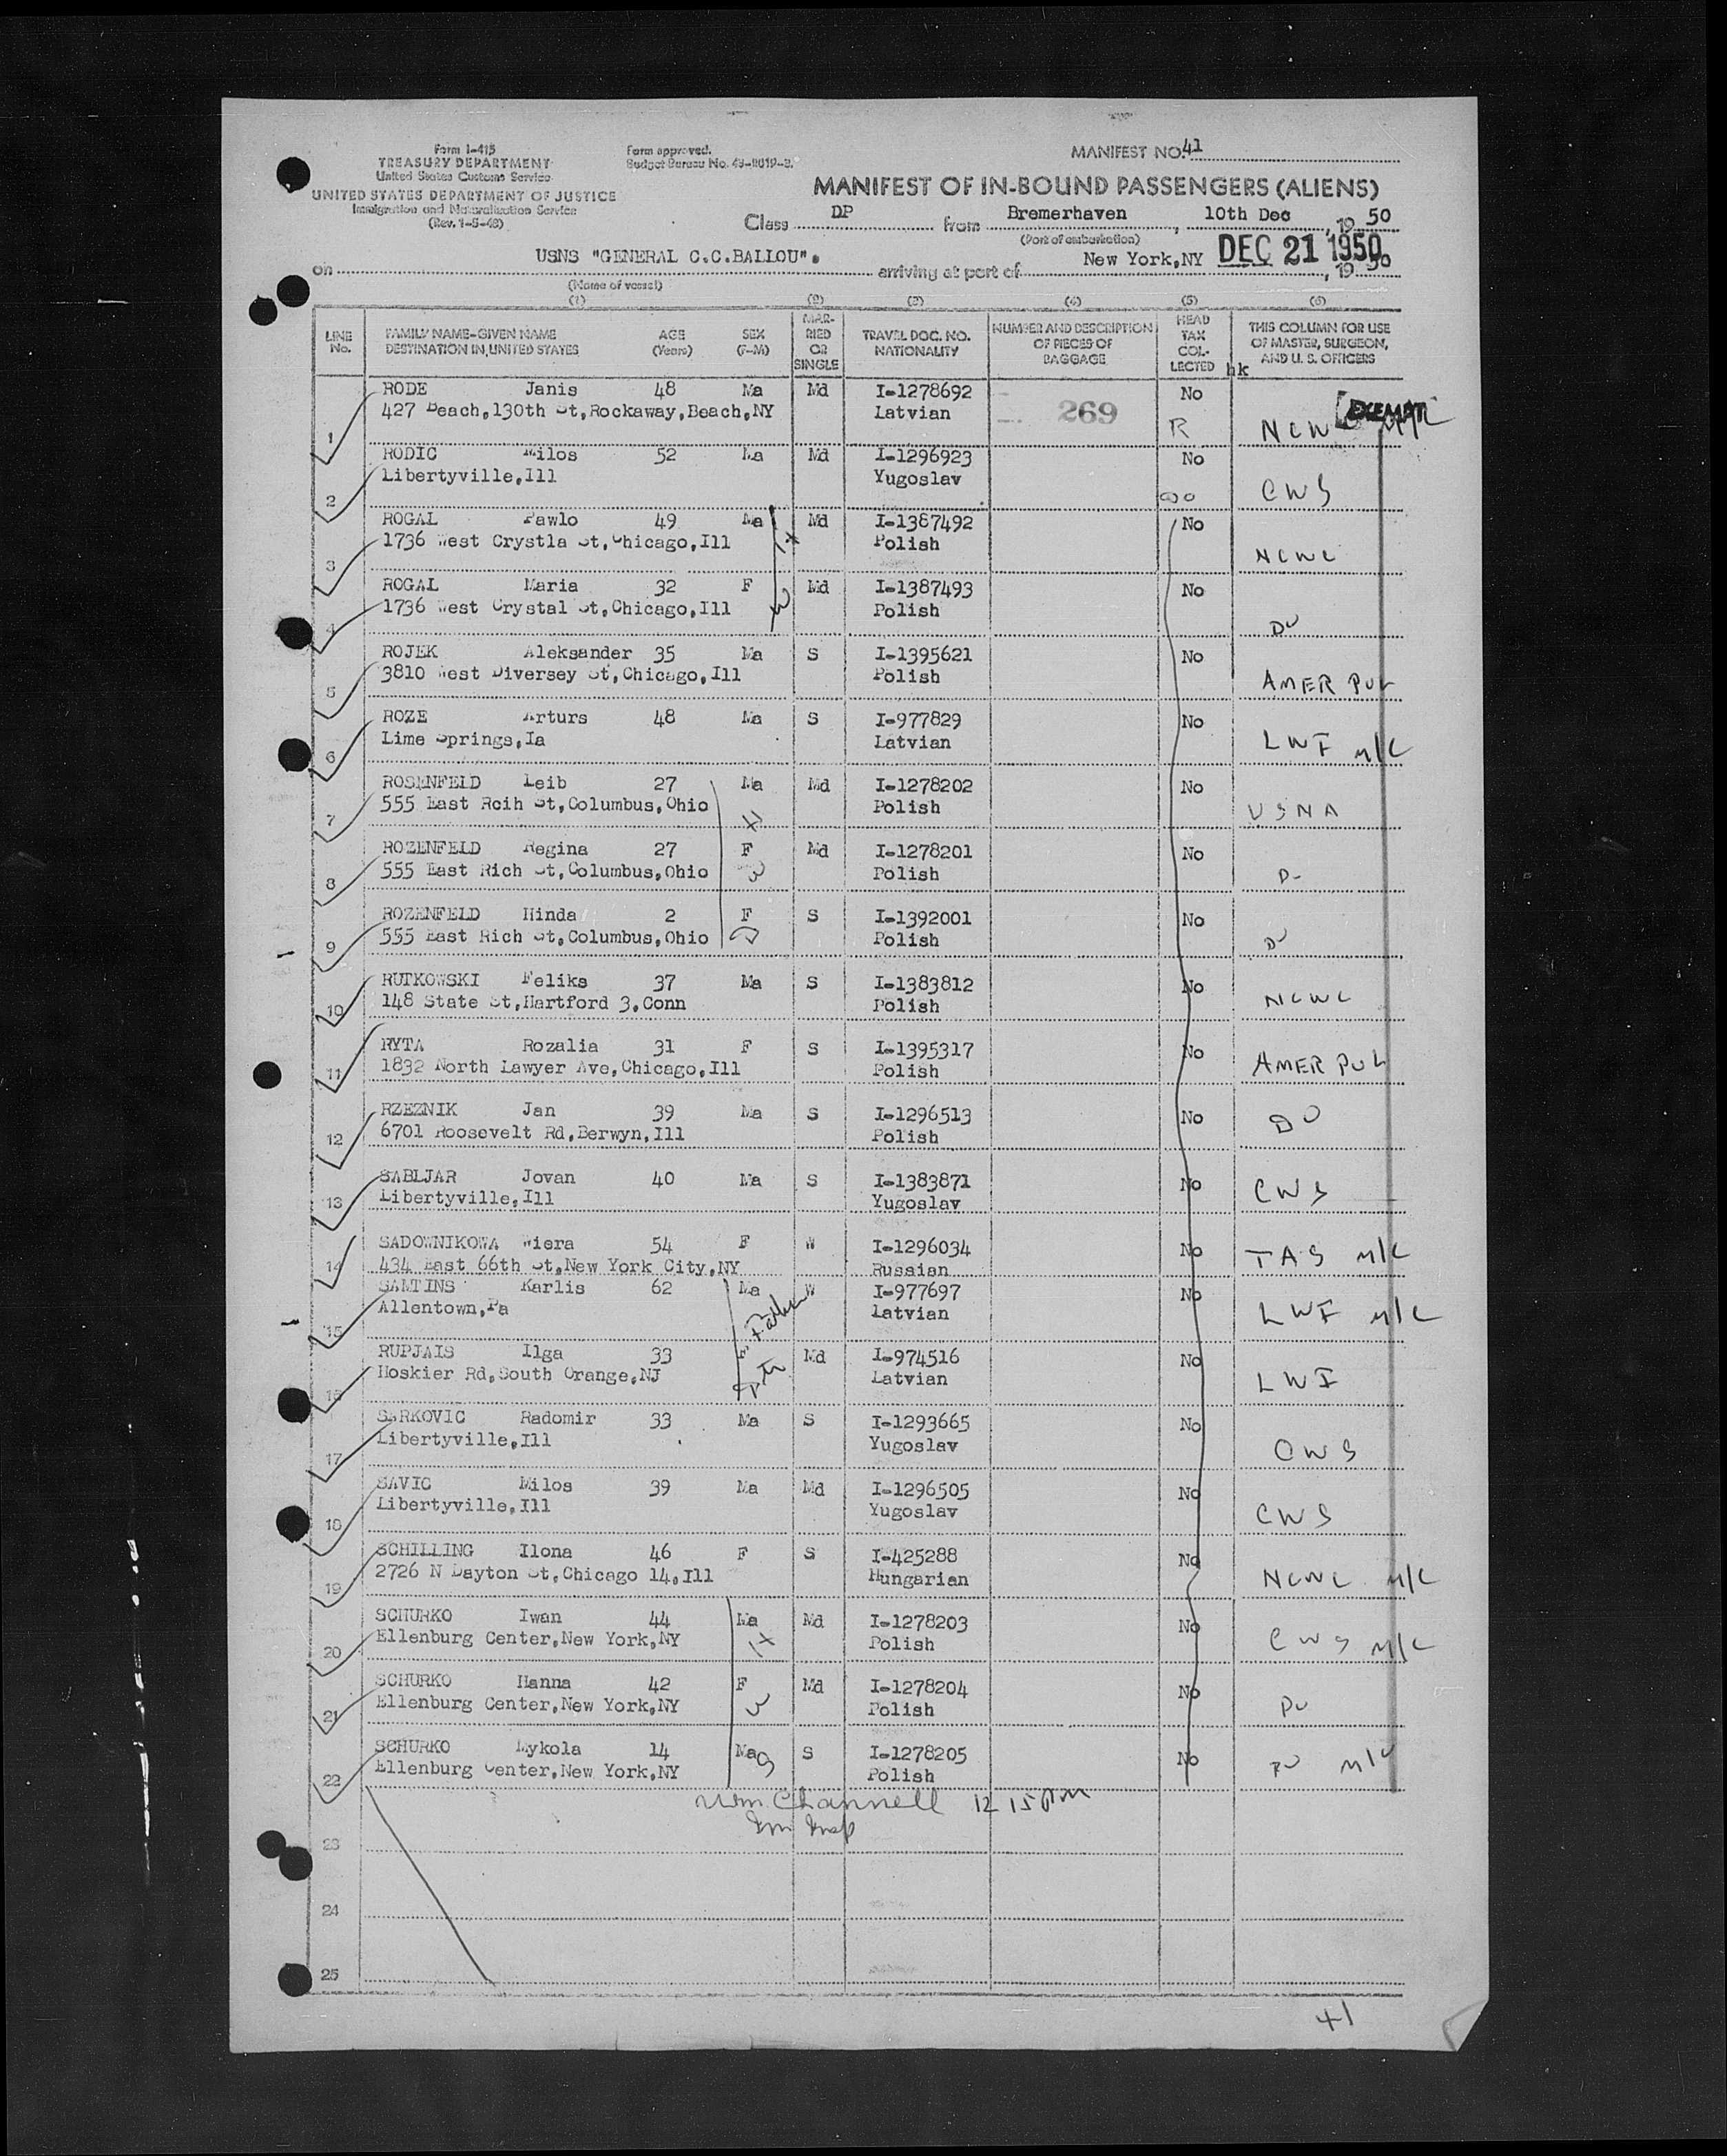 Form I-415
TREASURY DEPARTMENT
United States Customs Service
UNITED STATES DEPARTMENT OF JUSTICE
Immigration and Naturalization Service
(Rev. 1-5-48)
Form approved.
Budget Bureau No. 43-R019-3.
MANIFEST NO. 41
MANIFEST OF IN-BOUND PASSENGERS (ALIENS)
Class DP from Bremerhaven, 10th Dec, 1950
(Port of embarkation)
on USNS "GENERAL C.C.BALLOU". arriving at port of New York,NY DEC 21 1950, 1950
(Name of vessel)
(1) (2) (3) (4) (5) (6)
LINE No. FAMILY NAME-GIVEN NAME DESTINATION IN UNITED STATES AGE (Years) SEX (F-M) MARRIED OR SINGLE TRAVEL DOC. NO. NATIONALITY NUMBER AND DESCRIPTION OF PIECES OF BAGGAGE HEAD TAX COLLECTED hk THIS COLUMN FOR USE OF MASTER, SURGEON, AND U. S. OFFICERS
RODE Janis 48 Ma Md I-1278692 No
427 Beach,130th St,Rockaway,Beach,NY Latvian 269 EXEMPT
1 R NCWC M/C
RODIC Milos 52 Ma Md I-1296923 No
Libertyville,Ill Yugoslav
2 CWS
ROGAL Pawlo 49 Ma Md I-1387492 No
1736 West Crystla St,Chicago,Ill H Polish
3 NCWC
ROGAL Maria 32 F Md I-1387493 No
1736 West Crystal St,Chicago,Ill W Polish
4 DO
ROJEK Aleksander 35 Ma S I-1395621 No
3810 West Diversey St,Chicago,Ill Polish
5 AMER POL
ROZE Arturs 48 Ma S I-977829 No
Lime Springs,Ia Latvian
6 LWF M/C
ROSENFELD Leib 27 Ma Md I-1278202 No
555 East Rcih St,Columbus,Ohio H Polish
7 USNA
ROZENFELD Regina 27 F Md I-1278201 No
555 East Rich St,Columbus,Ohio W Polish
8
ROZENFELD Hinda 2 F S I-1392001 No
555 East Rich St,Columbus,Ohio D Polish
9 DO
RUTKOWSKI Feliks 37 Ma S I-1383812 No
148 State St,Hartford 3,Conn Polish
10 NCWC
RYTA Rozalia 31 F S I-1395317 No
1832 North Lawyer Ave,Chicago,Ill Polish
11 AMER POL
RZEZNIK Jan 39 Ma S I-1296513 No
6701 Roosevelt Rd,Berwyn,Ill Polish
12 DO
SABLJAR Jovan 40 Ma S I-1383871 No
Libertyville,Ill Yugoslav
13 CWS
SADOWNIKOWA Wiera 54 F W I-1296034 No
434 East 66th St,New York City,NY Russian
14 TAS M/C
SAMTINS Karlis 62 Ma W I-977697 No
Allentown,Pa Father Latvian
15 LWF M/C
RUPJAIS Ilga 33 F Md I-974516 No
Hoskier Rd,South Orange,NJ Latvian
16 LWF
SARKOVIC Radomir 33 Ma S I-1293665 No
Libertyville,Ill Yugoslav
17 CWS
SAVIC Milos 39 Ma Md I-1296505 No
Libertyville,Ill Yugoslav
18 CWS
SCHILLING Ilona 46 F S I-425288 No
2726 N Dayton St,Chicago 14,Ill Hungarian
19 NCWC M/C
SCHURKO Iwan 44 Ma Md I-1278203 No
Ellenburg Center,New York,NY H Polish
20 CWS M/C
SCHURKO Hanna 42 F Md I-1278204 No
Ellenburg Center,New York,NY W Polish
21 DO
SCHURKO Mykola 14 Ma S I-1278205 No
Ellenburg Center,New York,NY S Polish
22 DO M/C
Wm. Channell 12 15 PM
Im Insp
23
24
25
41